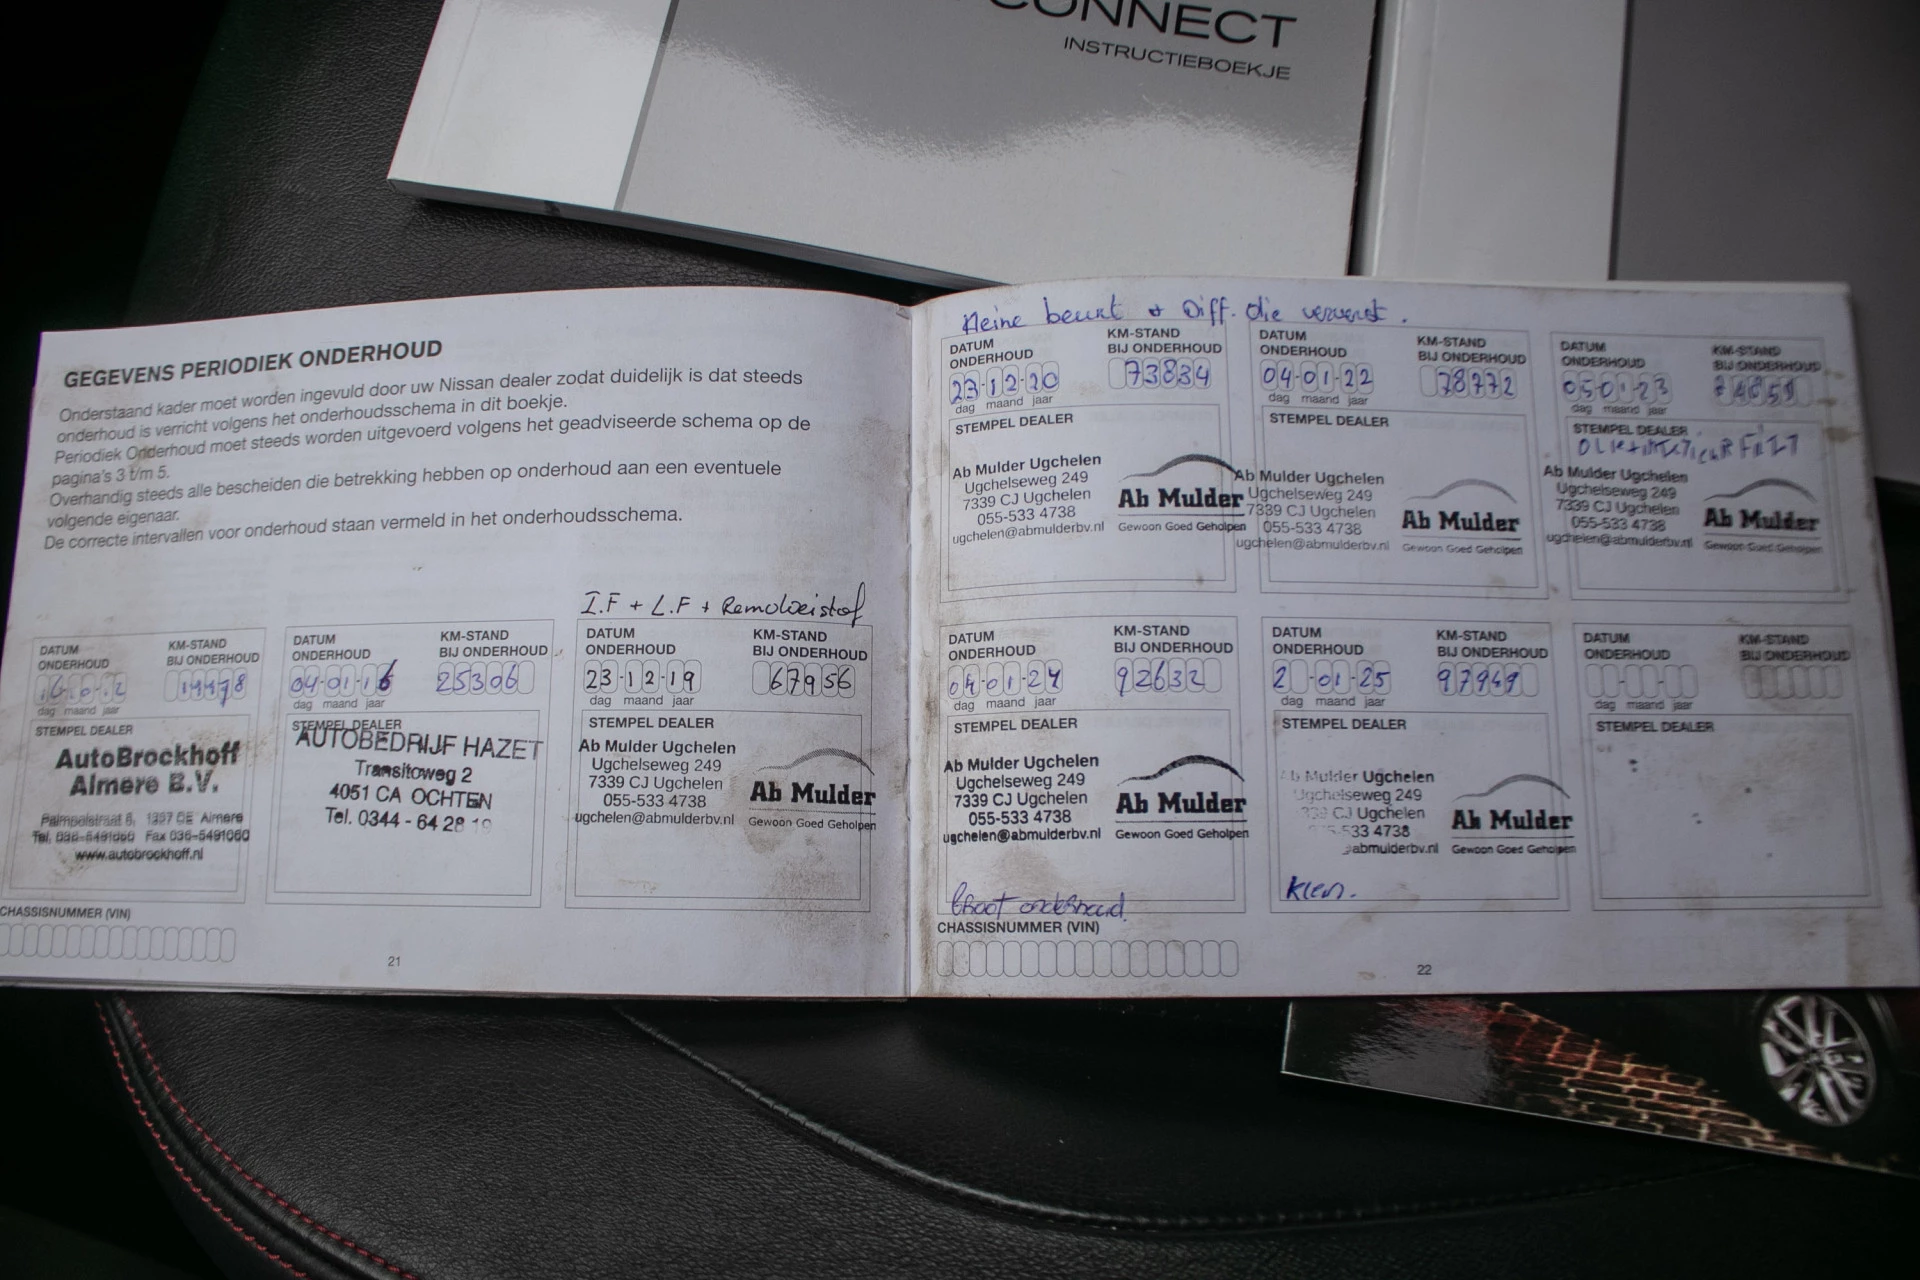 CONNECT
INSTRUCTIEBOEKJE
GEGEVENS PERIODIEK ONDERHOUD
Onderstaand kader moet worden ingevuld door uw Nissan dealer zodat duidelijk is dat steeds
onderhoud is verricht volgens het onderhoudsschema in dit boekje.
Periodiek Onderhoud moet steeds worden uitgevoerd volgens het geadviseerde schema op de
pagina's 3 t/m 5.
Overhandig steeds alle bescheiden die betrekking hebben op onderhoud aan een eventuele
volgende eigenaar.
De correcte intervallen voor onderhoud staan vermeld in het onderhoudsschema.
DATUM ONDERHOUD
KM-STAND BIJ ONDERHOUD
dag maand jaar
STEMPEL DEALER
AutoBrockhoff
Almere B.V.
Tel. 036-5491060 Fax 036-5491060
www.autobrockhoff.nl
DATUM ONDERHOUD
KM-STAND BIJ ONDERHOUD
04-01-16
25306
dag maand jaar
STEMPEL DEALER
AUTOBEDRIJF HAZET
Transitoweg 2
4051 CA OCHTEN
Tel. 0344 - 64 28 19
I.F + L.F + Remvloeistof
DATUM ONDERHOUD
KM-STAND BIJ ONDERHOUD
23-12-19
67956
dag maand jaar
STEMPEL DEALER
Ab Mulder Ugchelen
Ugchelseweg 249
7339 CJ Ugchelen
055-533 4738
ugchelen@abmulderbv.nl
Ab Mulder
Gewoon Goed Geholpen
CHASSISNUMMER (VIN)
21
Kleine beurt + Diff. olie ververst.
DATUM ONDERHOUD
KM-STAND BIJ ONDERHOUD
23-12-20
73834
dag maand jaar
STEMPEL DEALER
Ab Mulder Ugchelen
Ugchelseweg 249
7339 CJ Ugchelen
055-533 4738
ugchelen@abmulderbv.nl
Ab Mulder
Gewoon Goed Geholpen
DATUM ONDERHOUD
KM-STAND BIJ ONDERHOUD
04-01-22
78772
dag maand jaar
STEMPEL DEALER
Ab Mulder Ugchelen
Ugchelseweg 249
7339 CJ Ugchelen
055-533 4738
ugchelen@abmulderbv.nl
Ab Mulder
Gewoon Goed Geholpen
DATUM ONDERHOUD
KM-STAND BIJ ONDERHOUD
05-01-23
dag maand jaar
STEMPEL DEALER
Ab Mulder Ugchelen
Ugchelseweg 249
7339 CJ Ugchelen
055-533 4738
ugchelen@abmulderbv.nl
Ab Mulder
Gewoon Goed Geholpen
DATUM ONDERHOUD
KM-STAND BIJ ONDERHOUD
04-01-24
92632
dag maand jaar
STEMPEL DEALER
Ab Mulder Ugchelen
Ugchelseweg 249
7339 CJ Ugchelen
055-533 4738
ugchelen@abmulderbv.nl
Ab Mulder
Gewoon Goed Geholpen
Groot onderhoud
DATUM ONDERHOUD
KM-STAND BIJ ONDERHOUD
2-01-25
97949
dag maand jaar
STEMPEL DEALER
Ab Mulder Ugchelen
Ugchelseweg 249
CJ Ugchelen
533 4738
abmulderbv.nl
Ab Mulder
Gewoon Goed Geholpen
Klein.
DATUM ONDERHOUD
KM-STAND BIJ ONDERHOUD
dag maand jaar
STEMPEL DEALER
CHASSISNUMMER (VIN)
22